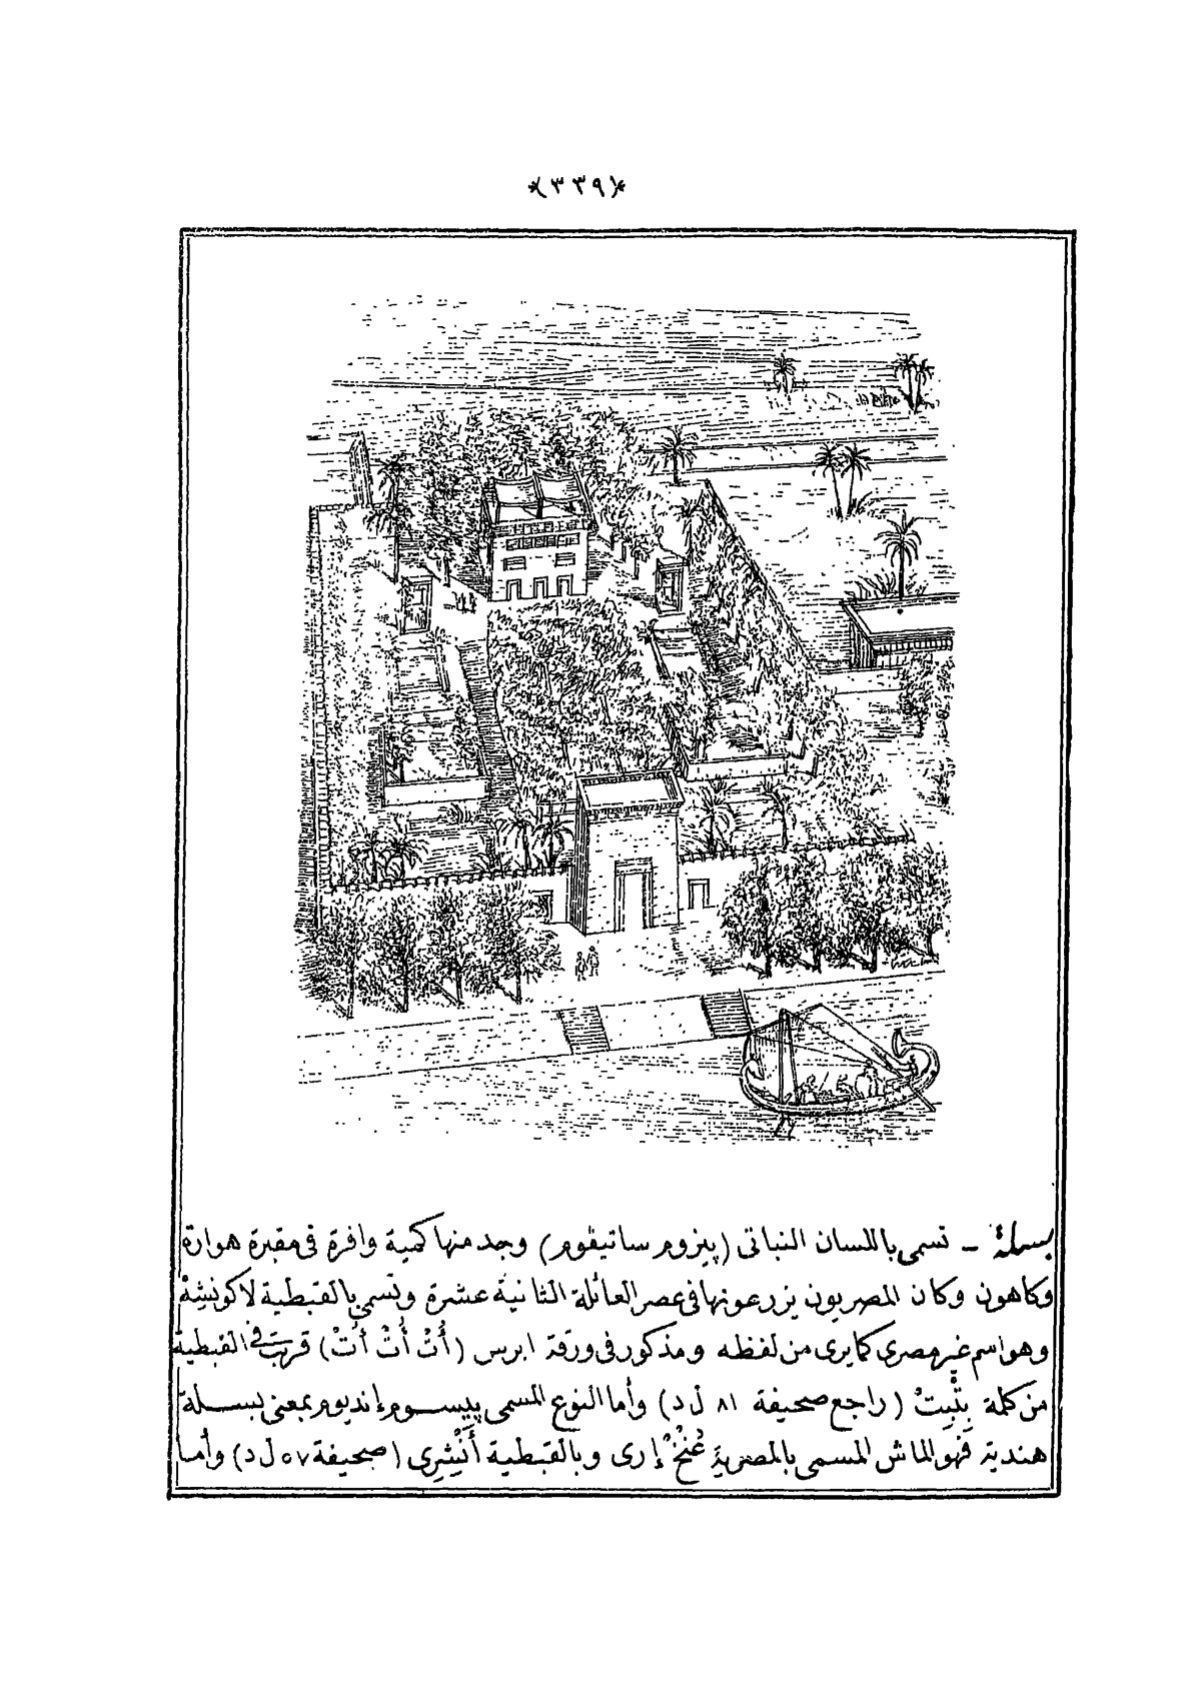 ﴿٣٣٩﴾
بسلة - تسمى باللسان النباتى (پيزوم ساتيڤوم) وجد منها كمية وافرة فى مقبرة هوارة
وكاهون وكان المصريون يزرعونها فى عصر العائلة الثانية عشرة وتسمى بالقبطية لاكونثة
وهو اسم غير مصرى كما يرى من لفظه ومذكور فى ورقة ابرس (أُتْ أُتْ أتْ) قربت فى القبطية
من كلمة (راجع صحيفة ٨١ ل د) وأما النوع المسمى پيسوم إنديوم بمعنى بسلة
هندية فهو الماش المسمى بالمصرية عُنْخْ إرى وبالقبطية أَنْشِرِى (صحيفة ٥٧ ل د) وأما